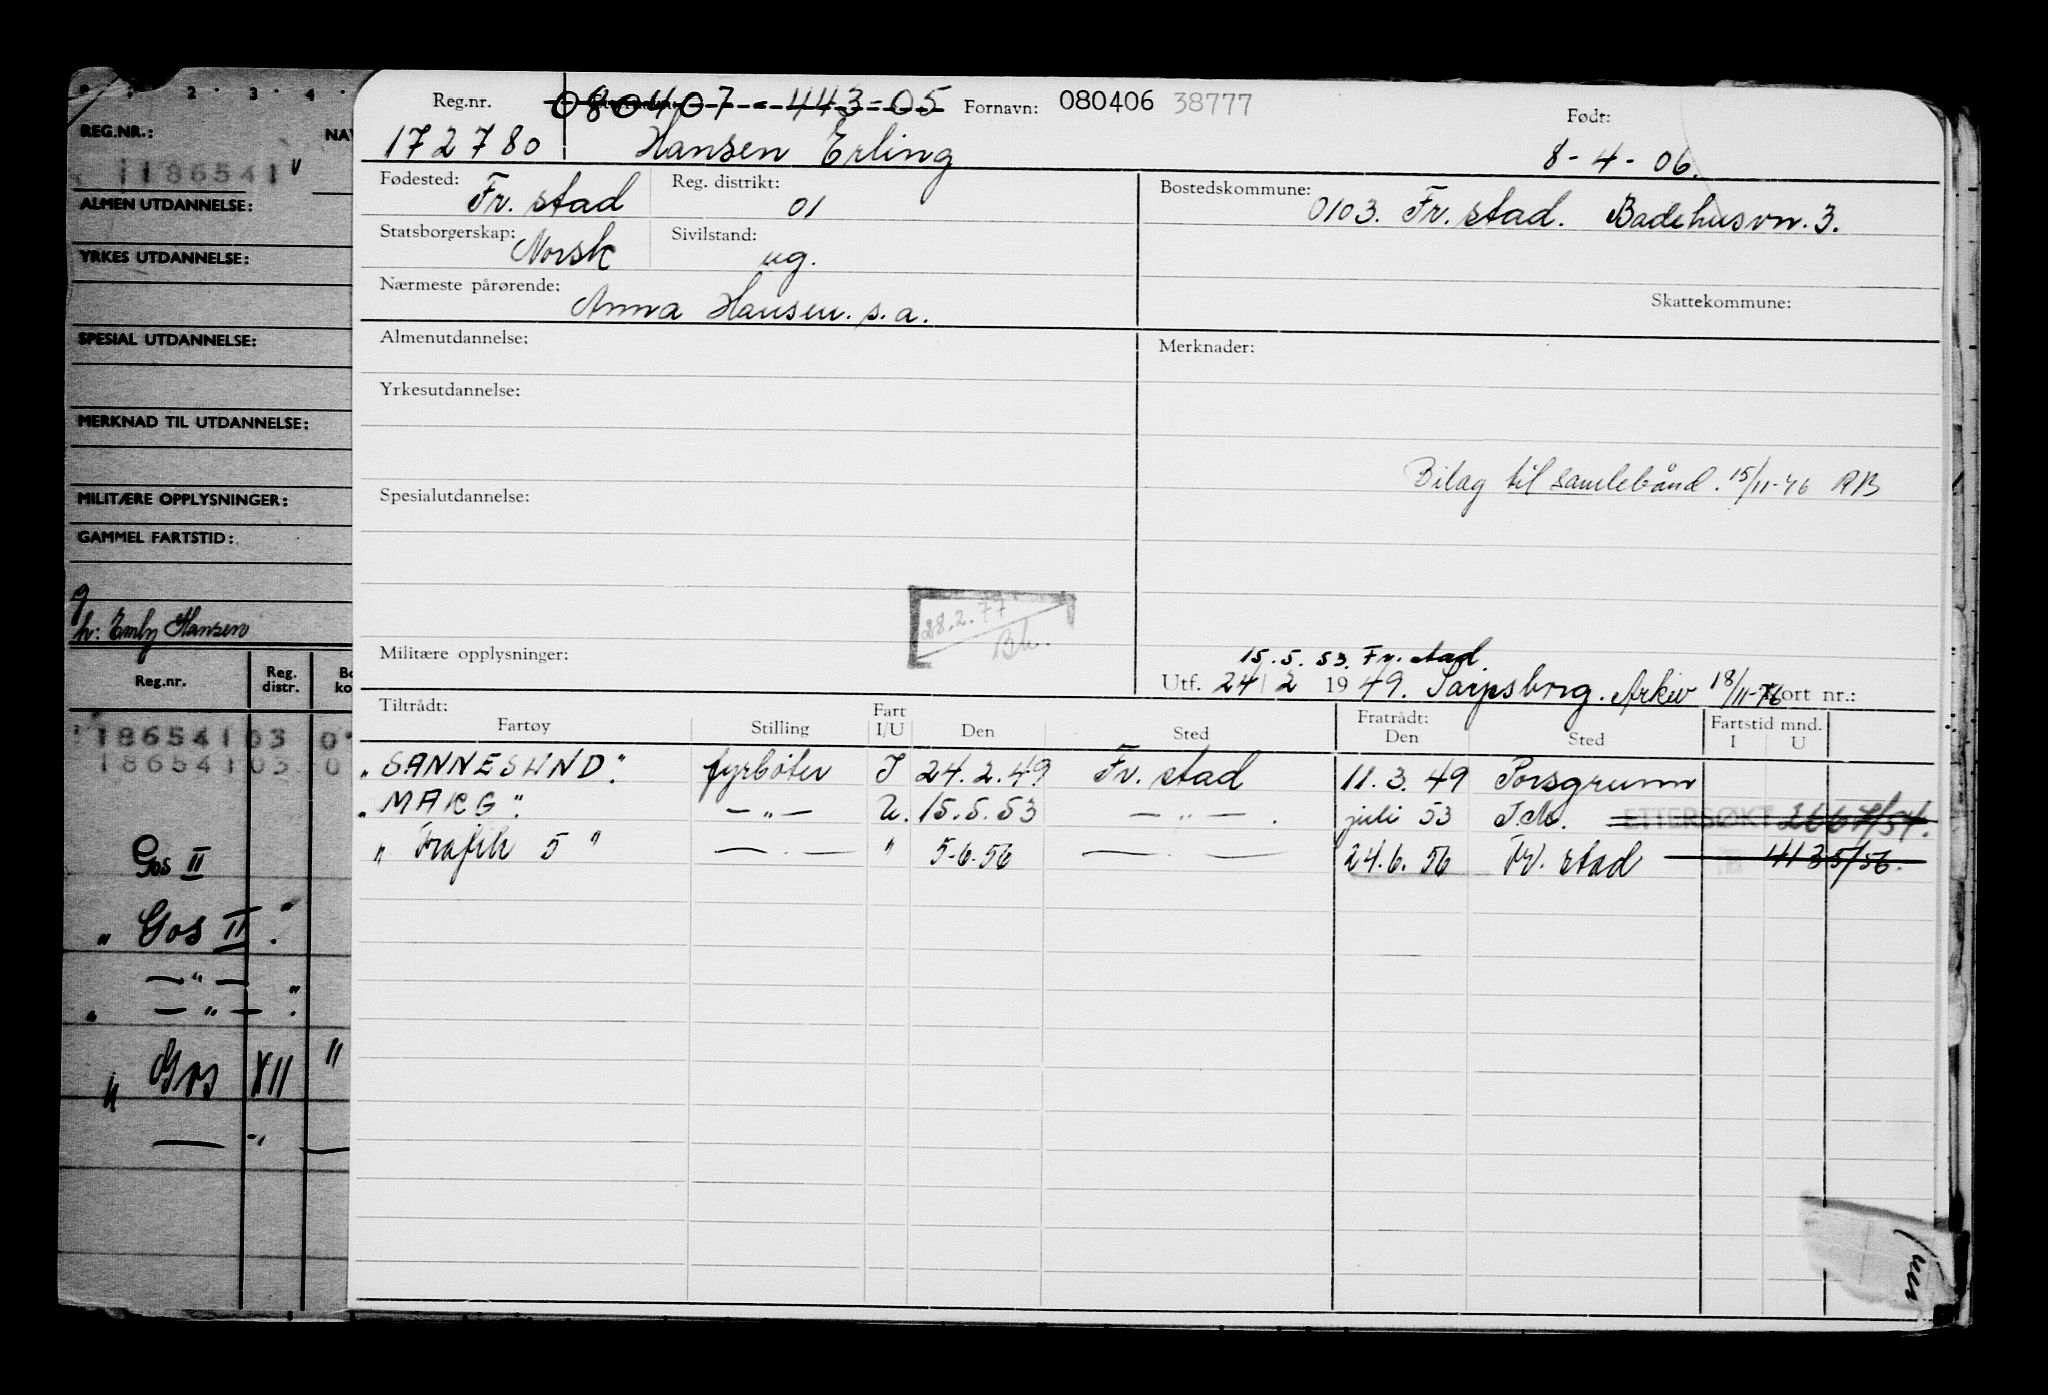 2 · 3 · 4 ·
REG.NR.:
NAV
1186541 v
ALMEN UTDANNELSE:
YRKES UTDANNELSE:
SPESIAL UTDANNELSE:
MERKNAD TIL UTDANNELSE:
MILITÆRE OPPLYSNINGER:
GAMMEL FARTSTID:
g
h: Emly Hansen
Reg.nr. Reg. distr. Bo ko
18654103 0
18654103 0
Gos II
" Gos II "
— " —
" — " — "
" Gos XII "
— " —
Reg.nr. 080407-443-05 Fornavn: 080406 38777 Født:
172780 Hansen Erling 8-4-06.
Fødested: Fr. stad Reg. distrikt: 01 Bostedskommune: 0103. Fr. stad. Badehusvn. 3.
Statsborgerskap: Norsk Sivilstand: ug.
Nærmeste pårørende: Anna Hansen. s.a. Skattekommune:
Almenutdannelse: Merknader:
Yrkesutdannelse:
Bilag til samlebånd. 15/11-76 RB
Spesialutdannelse:
28.2.77
Militære opplysninger:
15.5.53. Fr. stad.
Utf. 24/2 1949. Sarpsborg. Arkiv 18/11-76 Kort nr.:
Tiltrådt: Fartøy Stilling Fart I/U Den Sted Fratrådt: Den Sted Fartstid mnd. I U
"SANNESUND". fyrbøter I 24.2.49 Fr. stad 11.3.49 Porsgrunn
"MAKG". — " — U. 15.5.53 — " — . juli 53 T.M. ETTERSØKT 2667/54.
" Trafik 5 " — . — " 5-6-56 — . — 24.6.56 Fr. stad 4135/56.